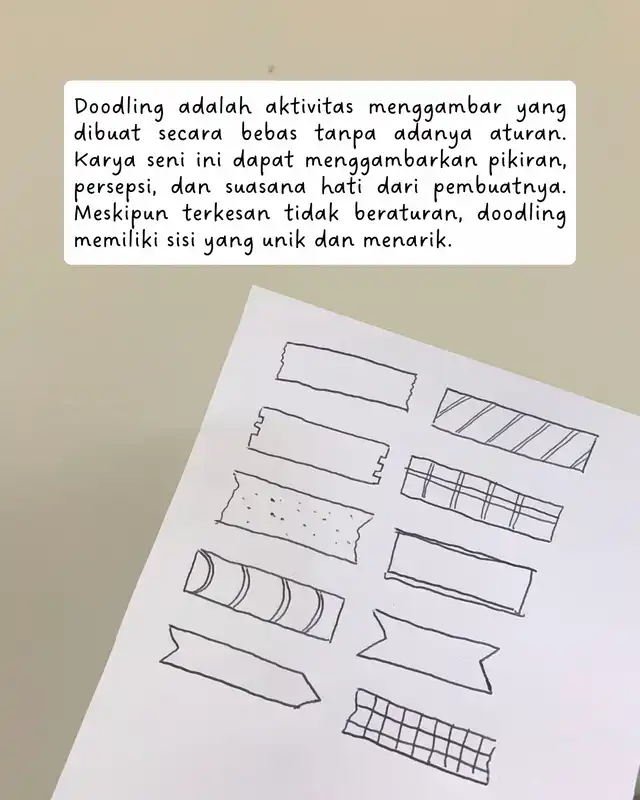 Doodling adalah aktivitas menggambar yang
dibuat secara bebas tanpa adanya aturan.
Karya seni ini dapat menggambarkan pikiran,
persepsi, dan suasana hati dari pembuatnya.
Meskipun terkesan tidak beraturan, doodling
memiliki sisi yang unik dan menarik.